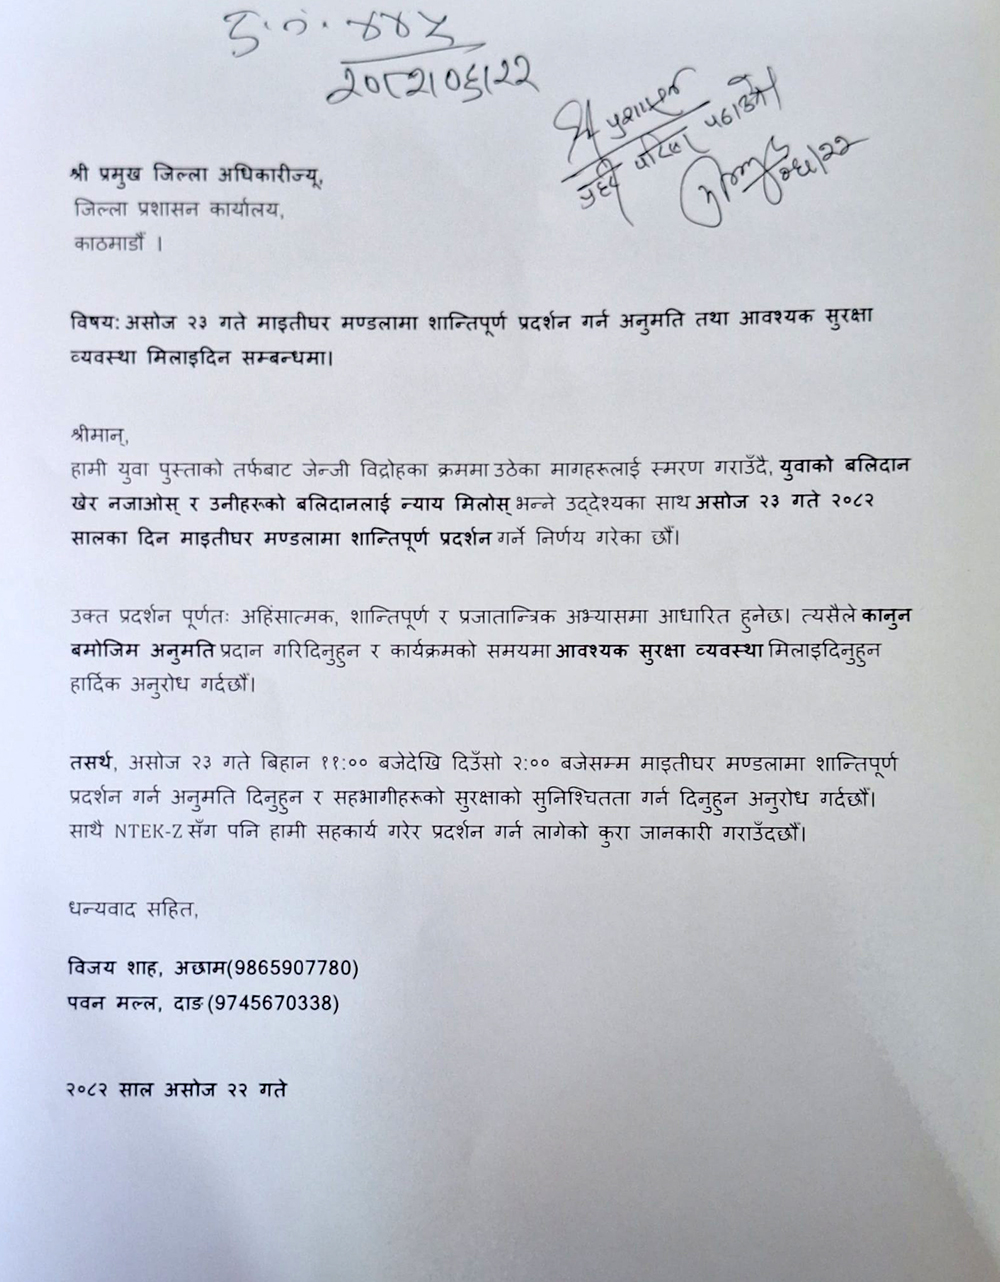 द.नं. ४४५
२०८२।०६।२२
श्री प्रशासन
पठाउने।
६।२२
श्री प्रमुख जिल्ला अधिकारीज्यू,
जिल्ला प्रशासन कार्यालय,
काठमाडौं ।
विषय: असोज २३ गते माइतीघर मण्डलामा शान्तिपूर्ण प्रदर्शन गर्न अनुमति तथा आवश्यक सुरक्षा
व्यवस्था मिलाइदिन सम्बन्धमा।
श्रीमान्,
हामी युवा पुस्ताको तर्फबाट जेन्जी विद्रोहका क्रममा उठेका मागहरूलाई स्मरण गराउँदै, युवाको बलिदान
खेर नजाओस् र उनीहरूको बलिदानलाई न्याय मिलोस् भन्ने उद्देश्यका साथ असोज २३ गते २०८२
सालका दिन माइतीघर मण्डलामा शान्तिपूर्ण प्रदर्शन गर्ने निर्णय गरेका छौं।
उक्त प्रदर्शन पूर्णतः अहिंसात्मक, शान्तिपूर्ण र प्रजातान्त्रिक अभ्यासमा आधारित हुनेछ। त्यसैले कानुन
बमोजिम अनुमति प्रदान गरिदिनुहुन र कार्यक्रमको समयमा आवश्यक सुरक्षा व्यवस्था मिलाइदिनुहुन
हार्दिक अनुरोध गर्दछौं।
तसर्थ, असोज २३ गते बिहान ११:०० बजेदेखि दिउँसो २:०० बजेसम्म माइतीघर मण्डलामा शान्तिपूर्ण
प्रदर्शन गर्न अनुमति दिनुहुन र सहभागीहरूको सुरक्षाको सुनिश्चितता गर्न दिनुहुन अनुरोध गर्दछौं।
साथै NTEK-Z सँग पनि हामी सहकार्य गरेर प्रदर्शन गर्न लागेको कुरा जानकारी गराउँदछौं।
धन्यवाद सहित,
विजय शाह, अछाम(9865907780)
पवन मल्ल, दाङ(9745670338)
२०८२ साल असोज २२ गते